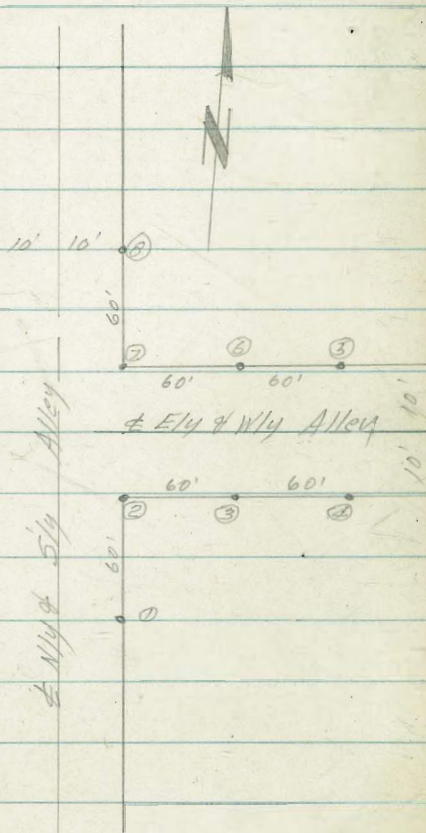 N
10' 10' 8
60'
7 6 5
60' 60'
℄ E'ly & W'ly Alley
10' 10'
60' 60'
2 3 4
60'
1
℄ N'ly & S'ly Alley